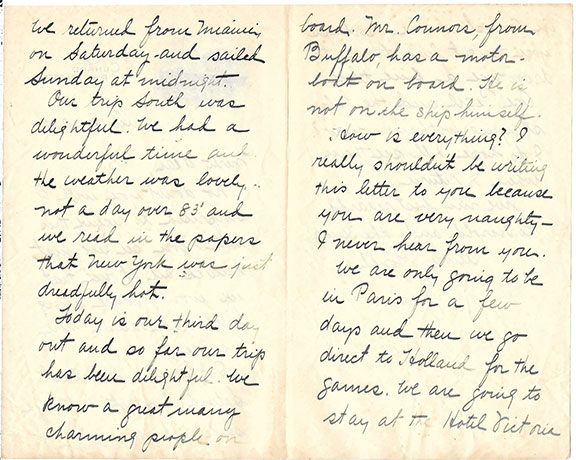 We returned from Miami,
on Saturday and sailed
Sunday at midnight.
Our trip South was
delightful. We had a
wonderful time and
the weather was lovely..
not a day over 83° and
we read in the papers
that New York was just
dreadfully hot.
Today is our third day
out and so far our trip
has been delightful. We
know a great many
charming people on
board. Mr. Connors, from
Buffalo has a motor-
boat on board. He is
not on the ship himself.
How is everything? I
really shouldn't be writing
this letter to you because
you are very naughty-
I never hear from you.
We are only going to be
in Paris for a few
days and then we go
direct to Holland for the
games. We are going to
stay at the Hotel Victoria